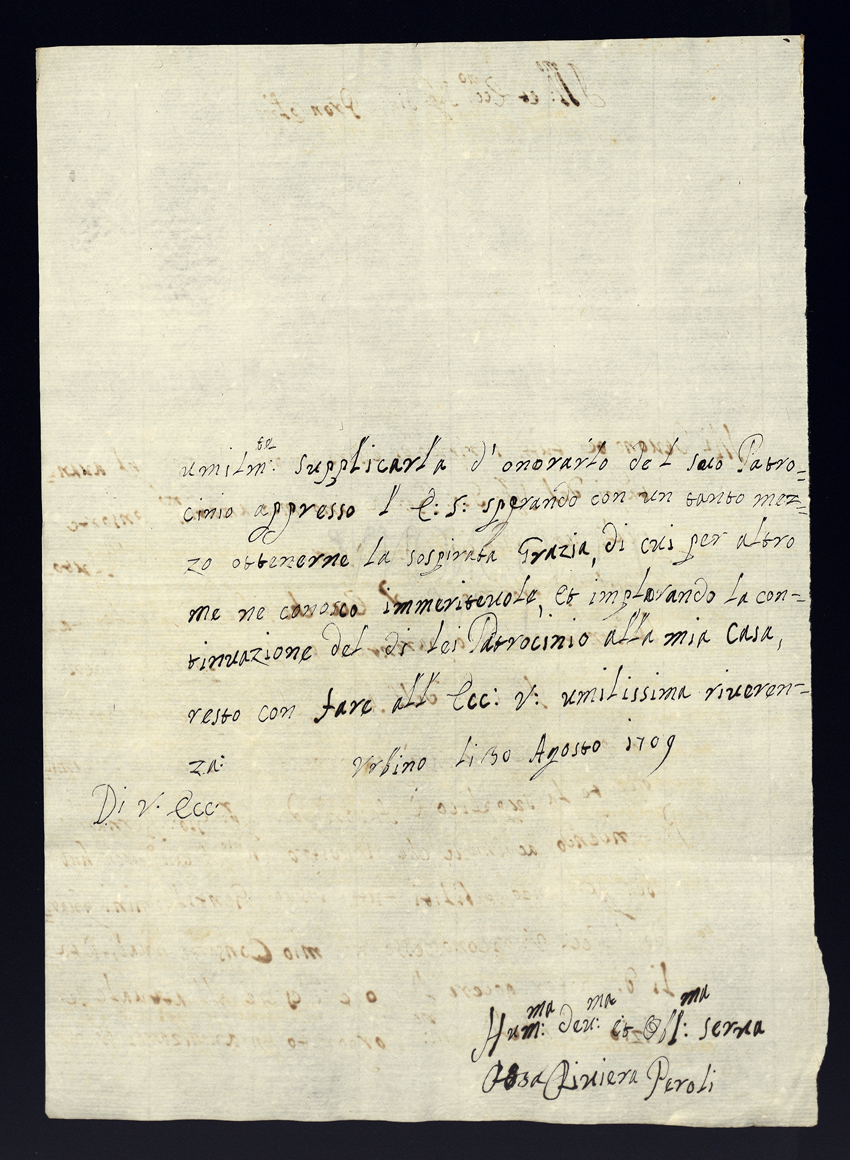 umilm:te supplicarla d'onorarlo del suo Patro-
cinio appresso l' E: S: sperando con un tanto mez-
zo ottenerne la sospirata Grazia, di cui per altro
me ne conosco immeritevole, et implorando la con-
tinuazione del di lei Patrocinio alla mia Casa,
resto con fare all' Ecc: V: umilissima riveren-
za: Urbino li 30 Agosto 1709
Di V. Ecc:
Hum:ma dev:ma et Obl:ma serva
Riviera Peroli